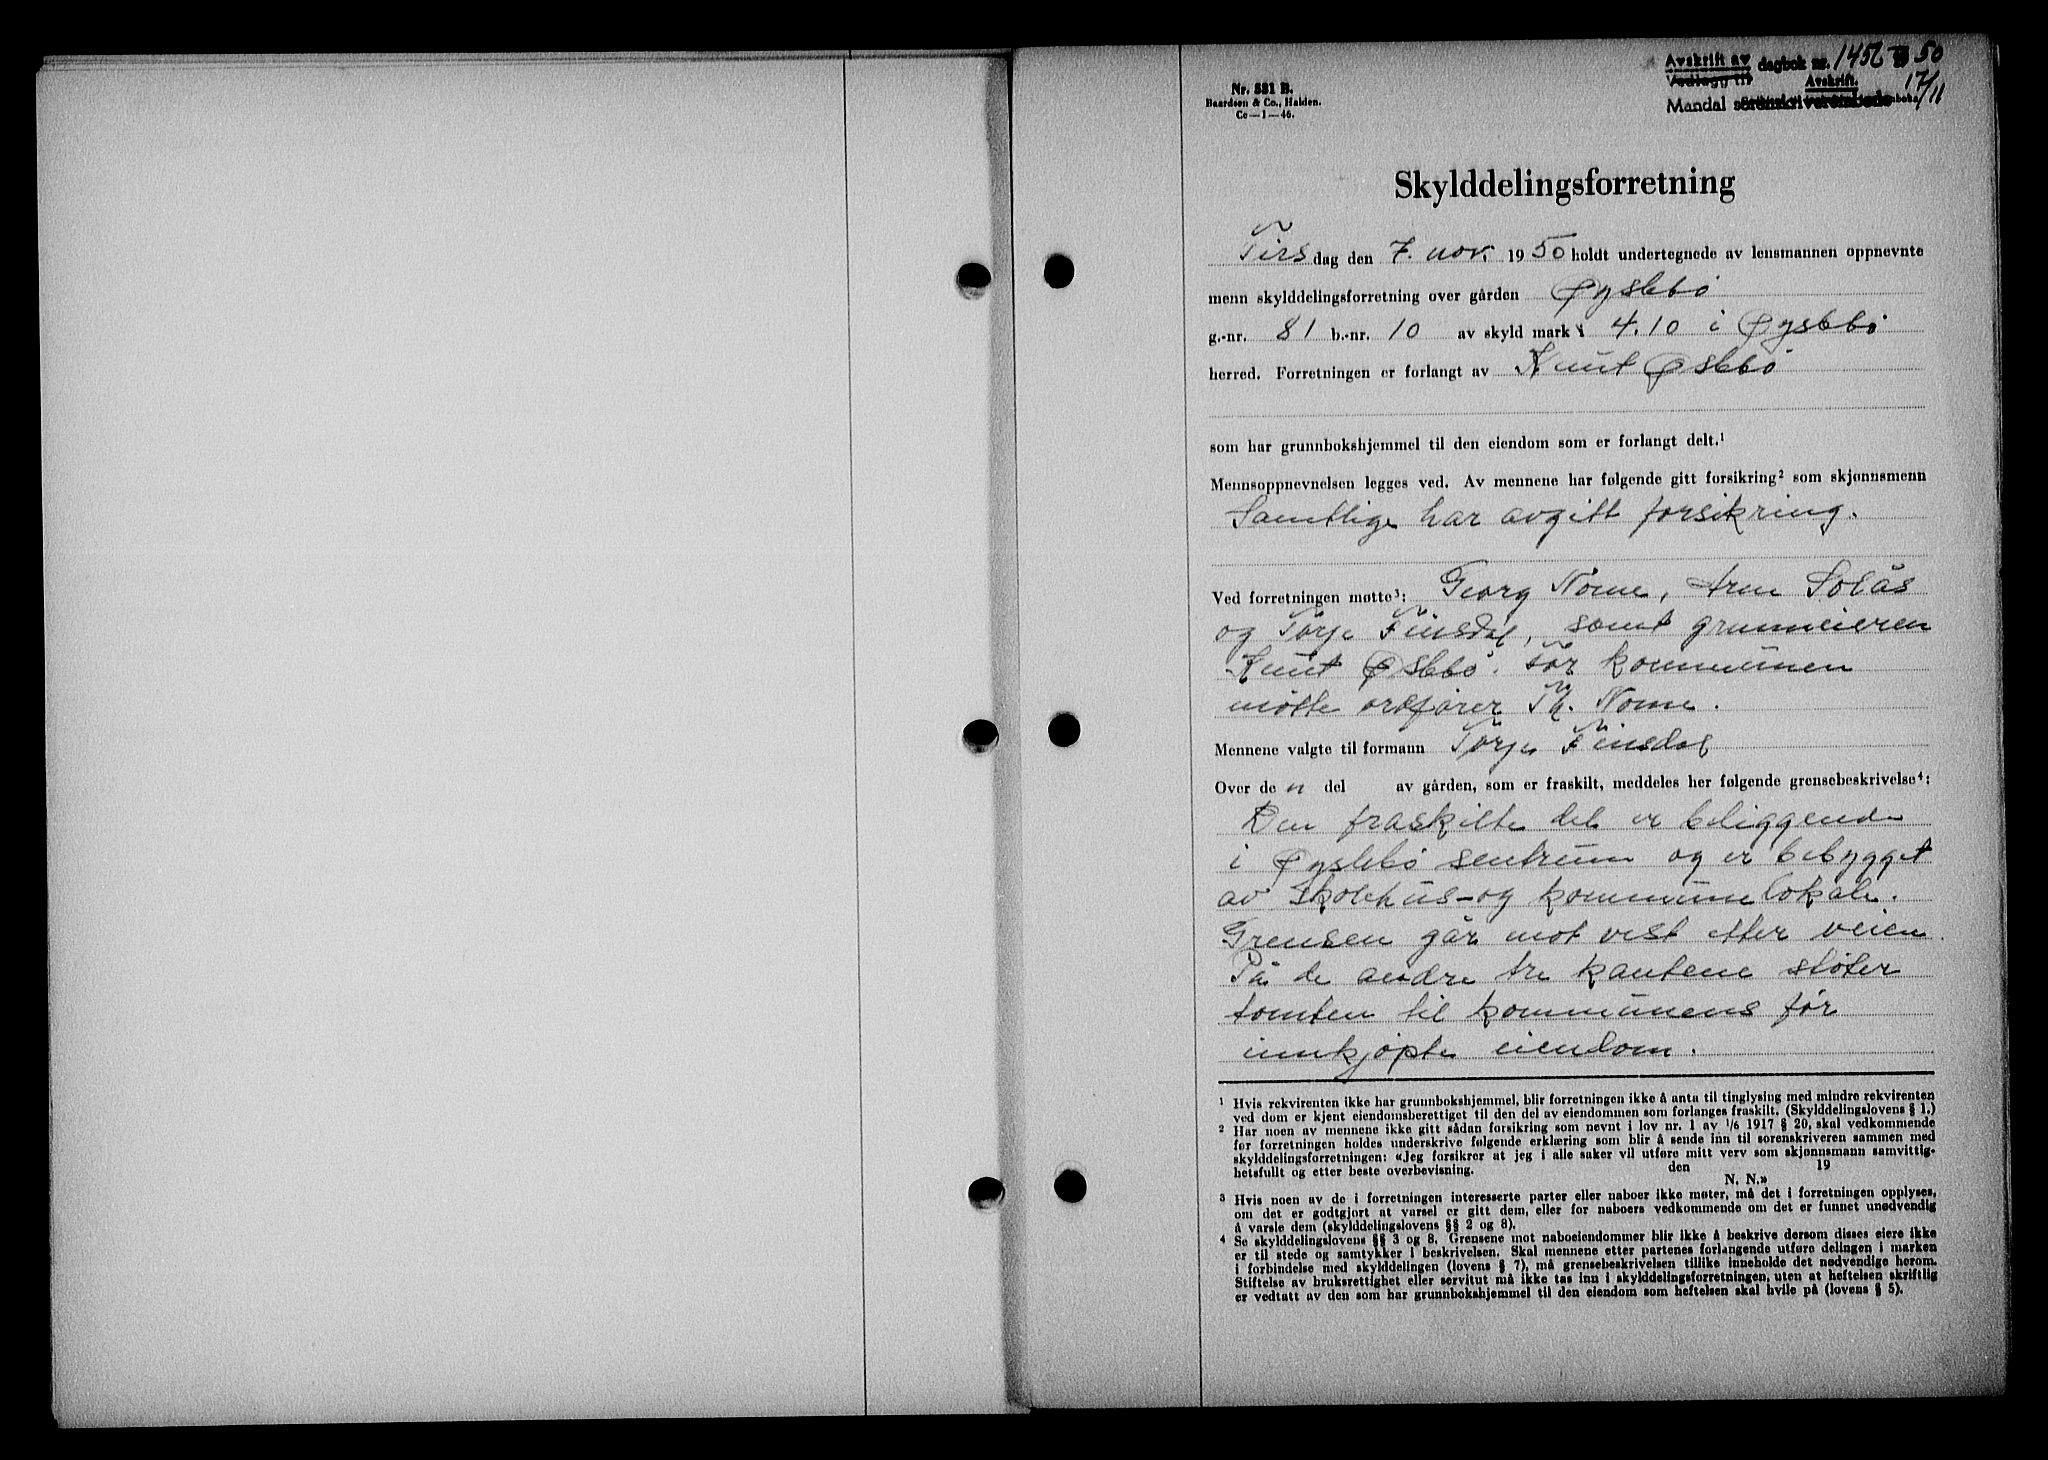 Avskrift av dagbok nr. 1456 - 50
Vedlegg til Avskrift. 17/11
Mandal sorenskriverembede
Nr. 331 B.
Baardsen & Co., Halden.
Ce—1—46.
Skylddelingsforretning
Tirsdag den 7. nov. 1950 holdt undertegnede av lensmannen oppnevnte
menn skylddelingsforretning over gården Øyslebø
g.-nr. 81 b.-nr. 10 av skyld mark 4.10 i Øyslebø
herred. Forretningen er forlangt av Knut Øslebø
som har grunnbokshjemmel til den eiendom som er forlangt delt.¹
Mennsoppnevnelsen legges ved. Av mennene har følgende gitt forsikring² som skjønnsmenn
Samtlige har avgitt forsikring.
Ved forretningen møtte³: Georg Nome, Arne Solås
og Torje Finsdal, samt grunneieren
Knut Øslebø. For kommunen
møtte ordfører Th. Nome.
Mennene valgte til formann Torje Finsdal
Over de n del av gården, som er fraskilt, meddeles her følgende grensebeskrivelse⁴:
Den fraskilte del er beliggende
i Øyslebø sentrum og er bebygget
av skolehus- og kommunelokale.
Grensen går mot vest etter veien.
På de andre tre kantene støter
tomten til kommunens før
innkjøpte eiendom.
¹ Hvis rekvirenten ikke har grunnbokshjemmel, blir forretningen ikke å anta til tinglysing med mindre rekvirenten
ved dom er kjent eiendomsberettiget til den del av eiendommen som forlanges fraskilt. (Skylddelingslovens § 1.)
² Har noen av mennene ikke gitt sådan forsikring som nevnt i lov nr. 1 av 1/6 1917 § 20, skal vedkommende
før forretningen holdes underskrive følgende erklæring som blir å sende inn til sorenskriveren sammen med
skylddelingsforretningen: «Jeg forsikrer at jeg i alle saker vil utføre mitt verv som skjønnsmann samvittig-
hetsfullt og etter beste overbevisning. den 19
N. N.»
³ Hvis noen av de i forretningen interesserte parter eller naboer ikke møter, må det i forretningen opplyses,
om det er godtgjort at varsel er gitt dem, eller for naboers vedkommende om det er funnet unødvendig
å varsle dem (skylddelingslovens §§ 2 og 8).
⁴ Se skylddelingslovens §§ 3 og 8. Grensene mot naboeiendommer blir ikke å beskrive dersom disses eiere ikke
er til stede og samtykker i beskrivelsen. Skal mennene etter partenes forlangende utføre delingen i marken
i forbindelse med skylddelingen (lovens § 7), må grensebeskrivelsen tillike inneholde det nødvendige herom.
Stiftelse av bruksrettighet eller servitut må ikke tas inn i skylddelingsforretningen, uten at heftelsen skriftlig
er vedtatt av den som har grunnbokshjemmel til den eiendom som heftelsen skal hvile på (lovens § 5).